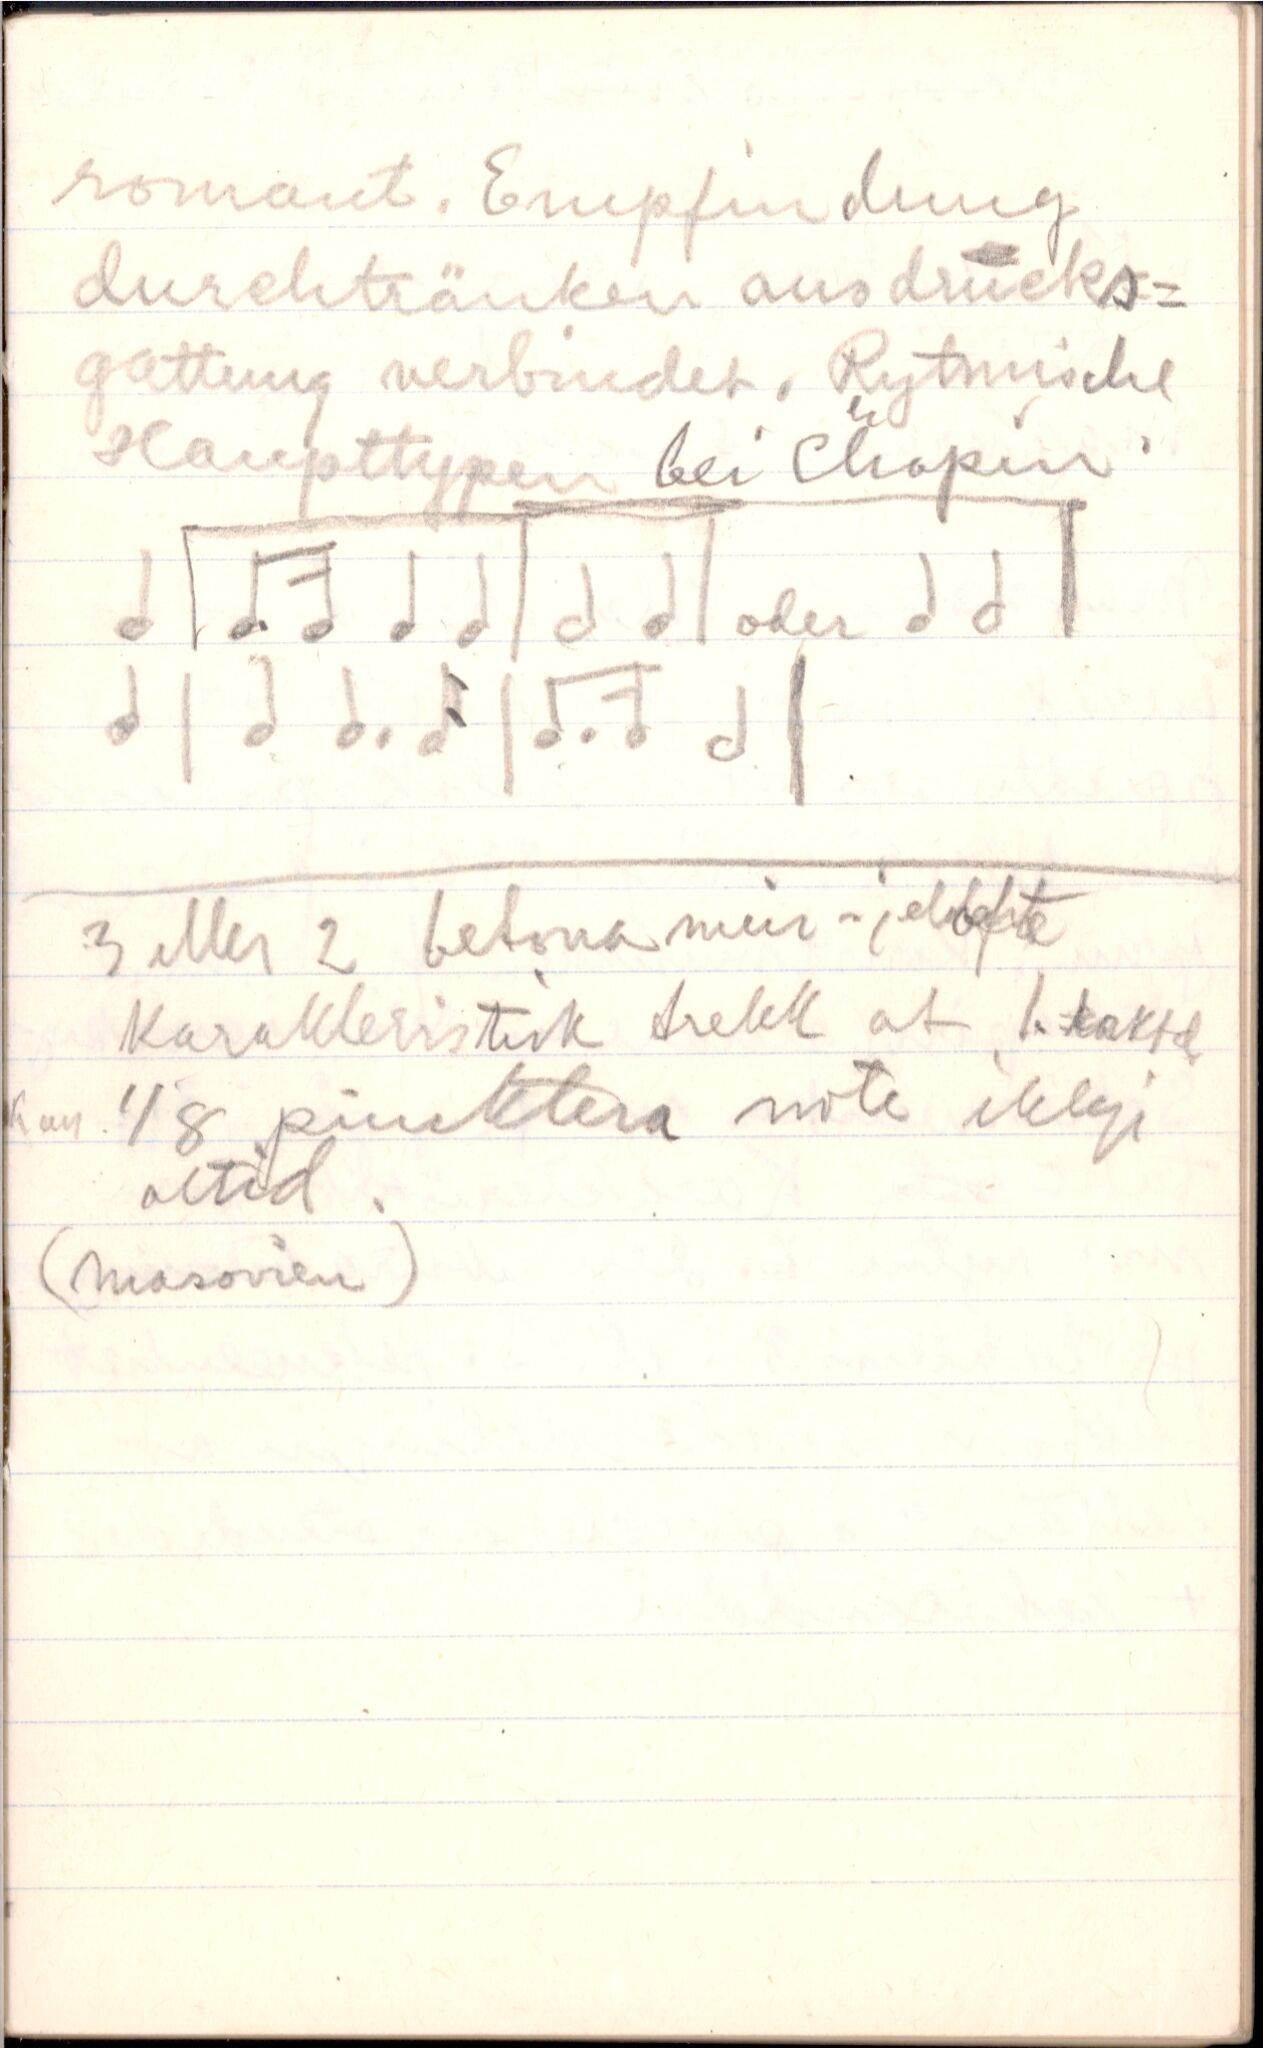 romant. Empfindung
durchtränken ausdrucks=
gattung verbindet. Rytmische
Haupttypen bei Chopin
oder
3 eller 2 betona meir
Karakteristisk trekk at 1. takta
Kan 1/8 punktera note ikkje
altid.
(Masovien)